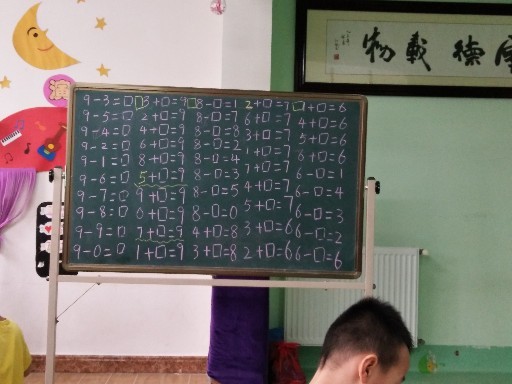 厚德載物
9-3=□ □3+□=9 □8-□=1 2+□=7 □+□=6
9-5=□ 2+□=9 8-□=7 6+□=7 4+□=6
9-4=□ 4+□=9 8-□=8 3+□=7 5+□=6
9-2=□ 6+□=9 8-□=2 1+□=7 6+□=6
9-1=□ 8+□=9 8-□=4 7+□=7 6-□=1
9-6=□ 5+□=9 8-□=3 4+□=7 6-□=4
9-7=□ 9+□=9 8-□=5 5+□=7 6-□=3
9-8=□ 0+□=9 8-□=0 3+□=6 6-□=2
9-9=□ 7+□=9 4+□=8 2+□=6 6-□=6
9-0=□ 1+□=9 3+□=8